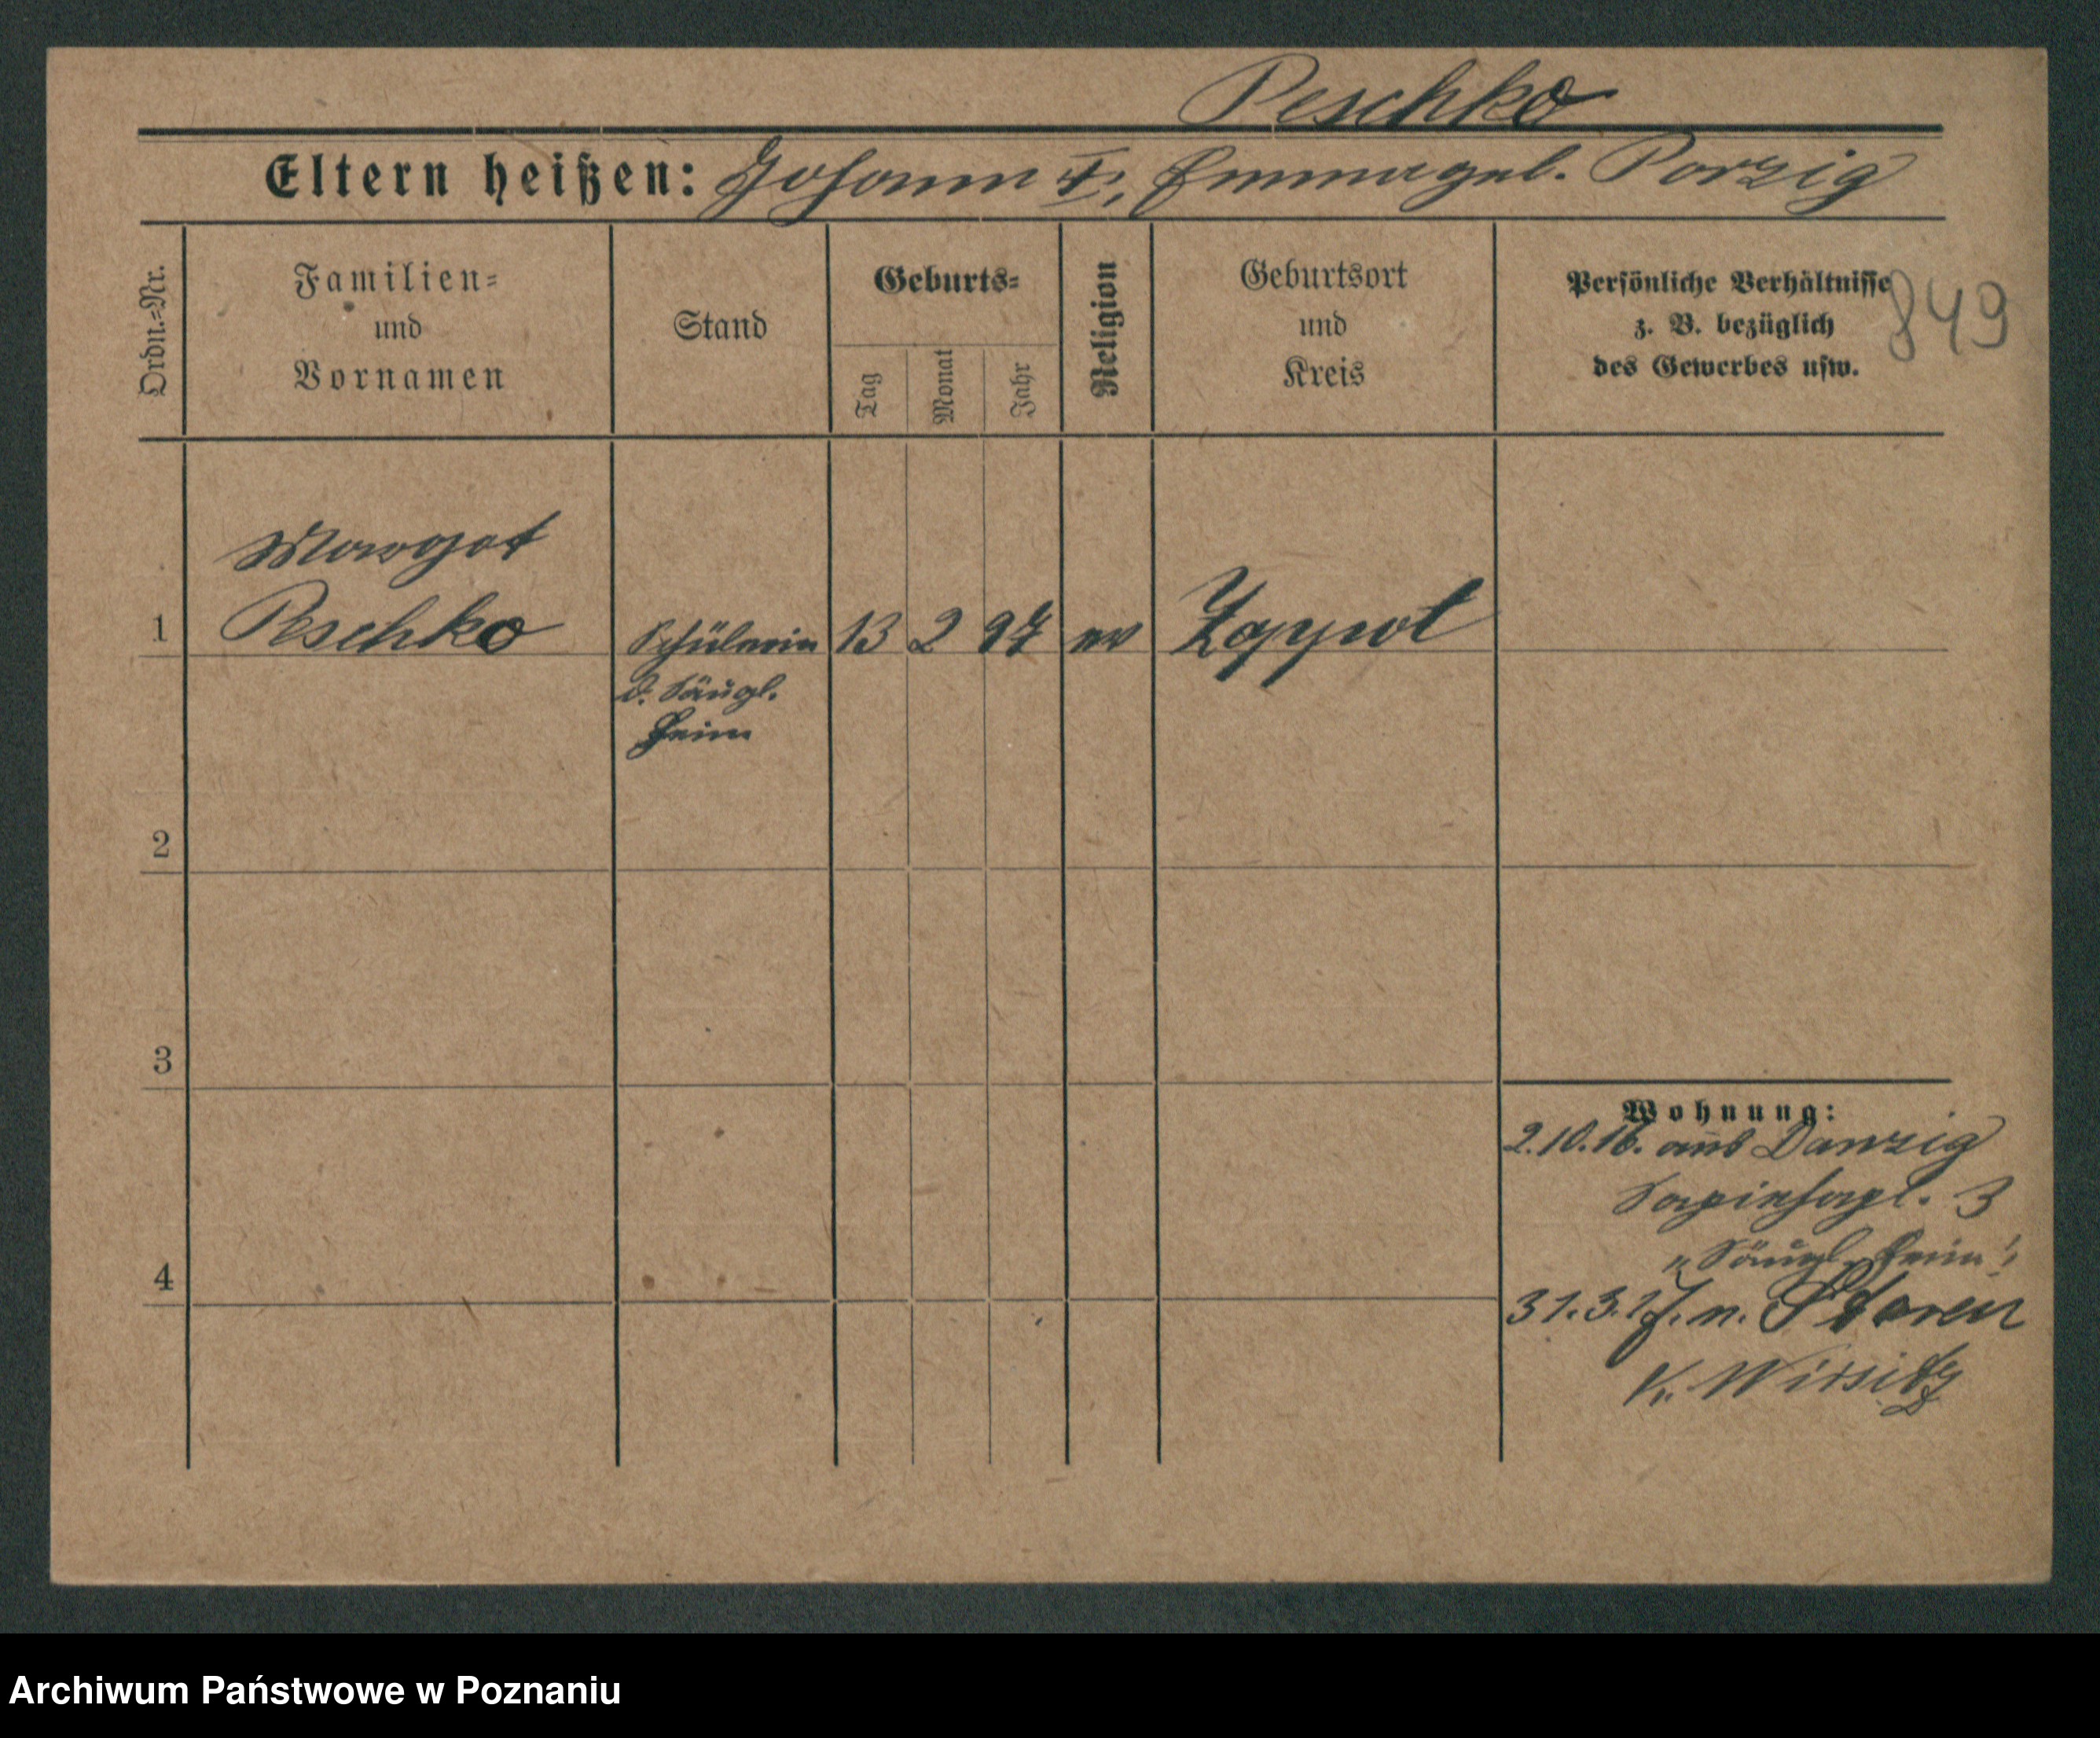 Peschko
Eltern heißen: Johann †, Emma geb. Porzig
Ordn.=Nr.
Familien=
und
Vornamen
Stand
Geburts=
Tag
Monat
Jahr
Religion
Geburtsort
und
Kreis
Persönliche Verhältnisse
z. B. bezüglich
des Gewerbes usw.
849
Margot
1 Peschko Schülerin 13 2 97 ev Zoppot
d. Säugl.
Heim
2
3
4
Wohnung:
2.10.16. aus Danzig
Sapiehapl. 3
"Säugl. Heim"
31.3.17. n.
Kr. Wirsitz
Archiwum Państwowe w Poznaniu